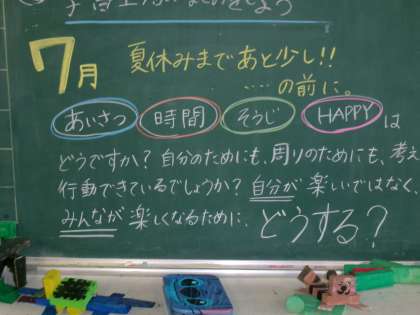 をしよう
7月 夏休みまであと少し!!
‥‥の前に。
あいさつ 時間 そうじ HAPPY は
どうですか？自分のためにも、周りのためにも、考え
行動できているでしょうか？自分が楽しいではなく、
みんなが楽しくなるために、どうする？